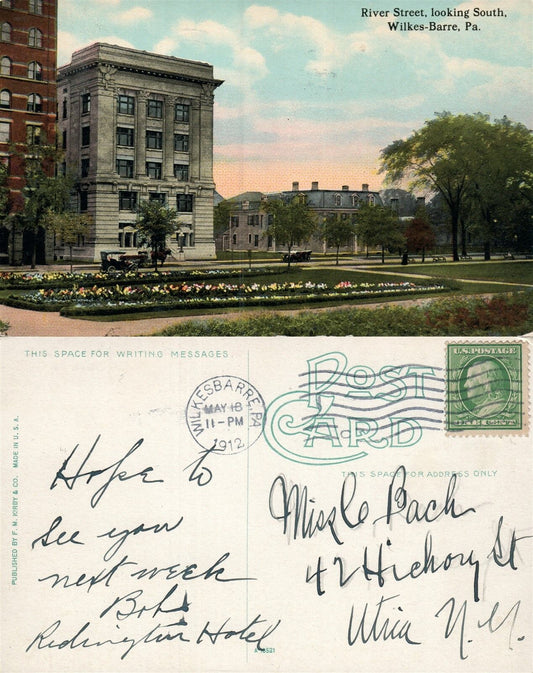 River Street, looking South,
Wilkes-Barre, Pa.
THIS SPACE FOR WRITING MESSAGES
POST
CARD
THIS SPACE FOR ADDRESS ONLY
WILKESBARRE, PA.
MAY 18
11-PM
1912
U.S. POSTAGE
PUBLISHED BY F. M. KIRBY & CO. MADE IN U. S. A.
Hope to
See you
next week
Bob
Redington Hotel
Miss C Bach
42 Hickory St
Utica N.Y.